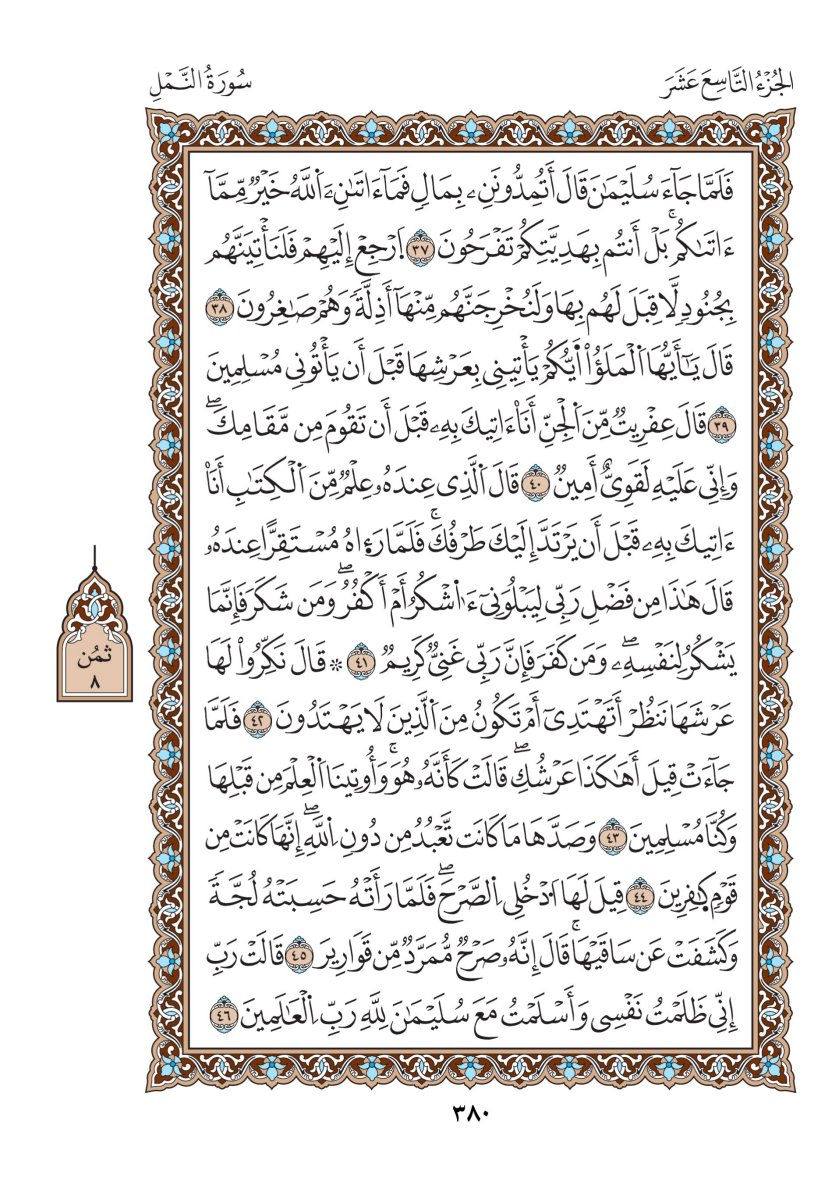 الجُزْءُ التَّاسِعَ عَشَرَ
سُورَةُ النَّمْلِ
فَلَمَّا جَآءَ سُلَيْمَٰنَ قَالَ أَتُمِدُّونَنِۦ بِمَالٖ فَمَآ ءَاتَىٰنِۦَ اَ۬للَّهُ خَيْرٞ مِّمَّآ
ءَاتَىٰكُمۚ بَلْ أَنتُم بِهَدِيَّتِكُمْ تَفْرَحُونَ ٣٧ اَ۪رْجِعْ إِلَيْهِمْ فَلَنَأْتِيَنَّهُم
بِجُنُودٖ لَّا قِبَلَ لَهُم بِهَا وَلَنُخْرِجَنَّهُم مِّنْهَآ أَذِلَّةٗ وَهُمْ صَٰغِرُونَ ٣٨
قَالَ يَٰٓأَيُّهَا اَ۬لْمَلَؤُاْ أَيُّكُمْ يَأْتِينِى بِعَرْشِهَا قَبْلَ أَن يَأْتُونِى مُسْلِمِينَ
٣٩ قَالَ عِفْرِيتٞ مِّنَ اَ۬لْجِنِّ أَنَا۠ ءَاتِيكَ بِهِۦ قَبْلَ أَن تَقُومَ مِن مَّقَامِكَۖ
وَإِنِّى عَلَيْهِ لَقَوِىٌّ أَمِينٞ ٤٠ قَالَ اَ۬لَّذِى عِندَهُۥ عِلْمٞ مِّنَ اَ۬لْكِتَٰبِ أَنَا۠
ءَاتِيكَ بِهِۦ قَبْلَ أَن يَرْتَدَّ إِلَيْكَ طَرْفُكَۚ فَلَمَّا رَءِاهُ مُسْتَقِرًّا عِندَهُۥ
قَالَ هَٰذَا مِن فَضْلِ رَبِّى لِيَبْلُوَنِىٓ ءَا۬شْكُرُ أَمْ أَكْفُرُۖ وَمَن شَكَرَ فَإِنَّمَا
يَشْكُرُ لِنَفْسِهِۦۖ وَمَن كَفَرَ فَإِنَّ رَبِّى غَنِىّٞ كَرِيمٞ ٤١ ۞ قَالَ نَكِّرُواْ لَهَا
عَرْشَهَا نَنظُرْ أَتَهْتَدِىٓ أَمْ تَكُونُ مِنَ اَ۬لَّذِينَ لَا يَهْتَدُونَ ٤٢ فَلَمَّا
جَآءَتْ قِيلَ أَهَٰكَذَا عَرْشُكِۖ قَالَتْ كَأَنَّهُۥ هُوَۚ وَأُوتِينَا اَ۬لْعِلْمَ مِن قَبْلِهَا
وَكُنَّا مُسْلِمِينَ ٤٣ وَصَدَّهَا مَا كَانَت تَّعْبُدُ مِن دُونِ اِ۬للَّهِۖ إِنَّهَا كَانَتْ مِن
قَوْمٖ كٰ۪فِرِينَ ٤٤ قِيلَ لَهَا اَ۟دْخُلِى اِ۬لصَّرْحَۖ فَلَمَّا رَأَتْهُ حَسِبَتْهُ لُجَّةٗ
وَكَشَفَتْ عَن سَاقَيْهَاۚ قَالَ إِنَّهُۥ صَرْحٞ مُّمَرَّدٞ مِّن قَوَارِيرَ ٤٥ قَالَتْ رَبِّ
إِنِّى ظَلَمْتُ نَفْسِى وَأَسْلَمْتُ مَعَ سُلَيْمَٰنَ لِلَّهِ رَبِّ اِ۬لْعَٰلَمِينَ ٤٦
ثُمُن
٨
٣٨٠